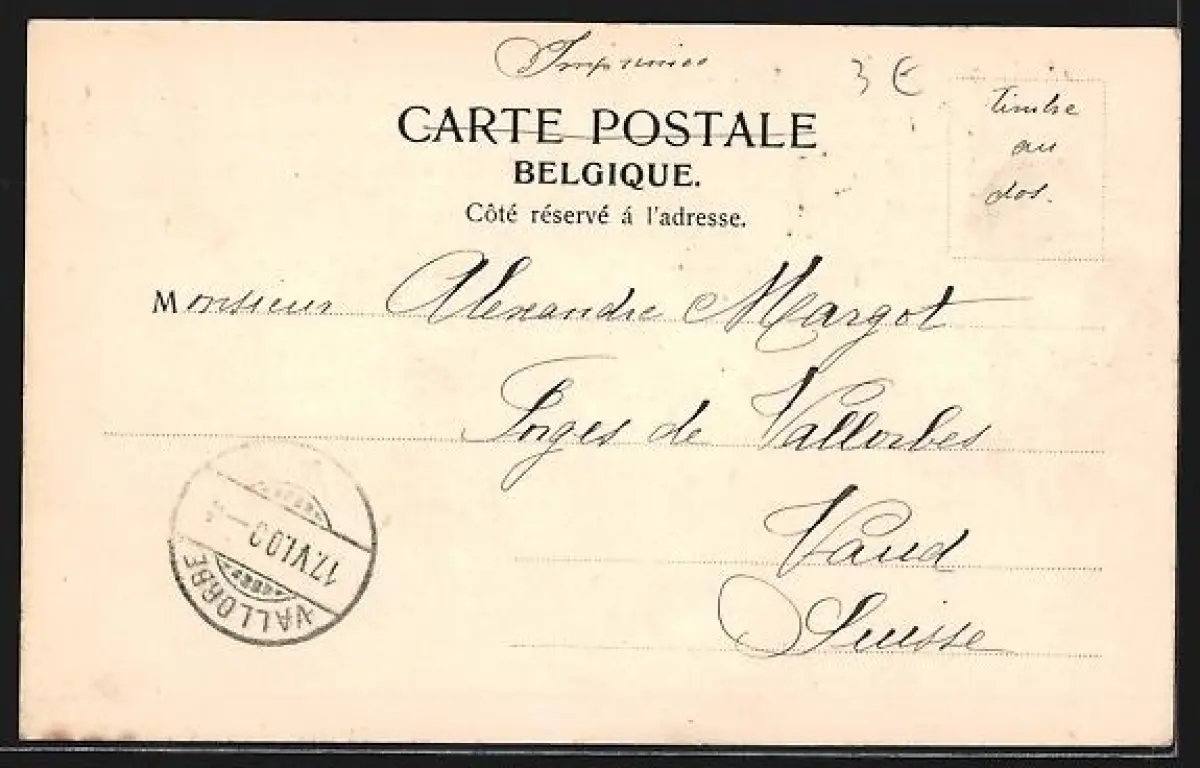 Imprimés
3 €
CARTE POSTALE
BELGIQUE.
Côté réservé á l'adresse.
timbre
au
dos.
Monsieur Alexandre Margot
Forges de Vallorbes
Vaud
Suisse
17.VI.00
VALLORBE